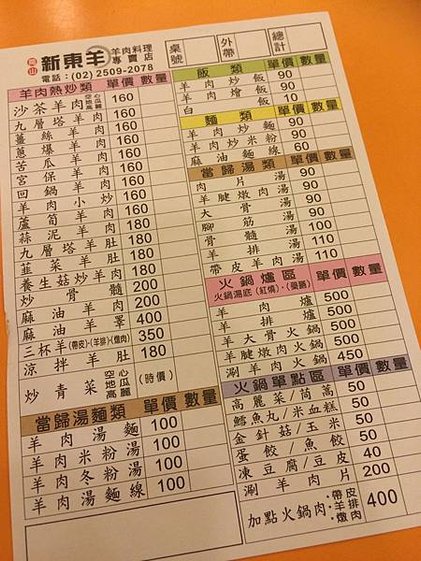 岡山 新東羊 羊肉料理專賣店
電話：(02) 2509-2078
桌號 外帶 總計
羊肉熱炒類 單價 數量
沙茶羊肉 空心 地瓜 高麗 160
九層塔羊肉 160
薑絲羊肉 160
蔥爆羊肉 160
苦瓜羊肉 160
宮保羊肉 160
回鍋羊肉 160
羊肉小炒 160
蘆筍羊肉 160
蒜泥羊肉 180
九層塔羊肚 180
韮菜羊肚 180
養生菇炒羊肉 180
炒骨髓 200
麻油羊肉 200
麻油羊睪 400
三杯羊(帶皮)·(羊排)·(燉肉) 350
涼拌羊肚 180
炒青菜 空心 地瓜 高麗 (時價)
當歸湯麵類 單價 數量
羊肉湯麵 100
羊肉米粉湯 100
羊肉冬粉湯 100
羊肉湯麵線 100
飯類 單價 數量
羊肉炒飯 90
羊肉燴飯 90
白飯 10
麵類 單價 數量
羊肉炒麵 90
羊肉炒米粉 90
麻油麵線 60
當歸湯類 單價 數量
肉片湯 90
羊腱燉肉湯 90
大骨湯 90
腳筋湯 90
骨髓湯 100
羊排湯 110
帶皮羊肉湯 110
火鍋爐區 單價 數量
火鍋湯底 (紅燒)·(藥膳)
羊肉爐 500
羊排爐 500
羊大骨火鍋 500
羊腱燉肉火鍋 500
涮羊肉火鍋 450
火鍋單點區 單價 數量
高麗菜/茼萵 50
鱈魚丸/米血糕 50
金針菇/玉米 50
蛋餃/魚餃 50
凍豆腐/豆皮 40
涮羊肉片 200
加點火鍋肉 ·帶皮 ·羊排 ·燉肉 400